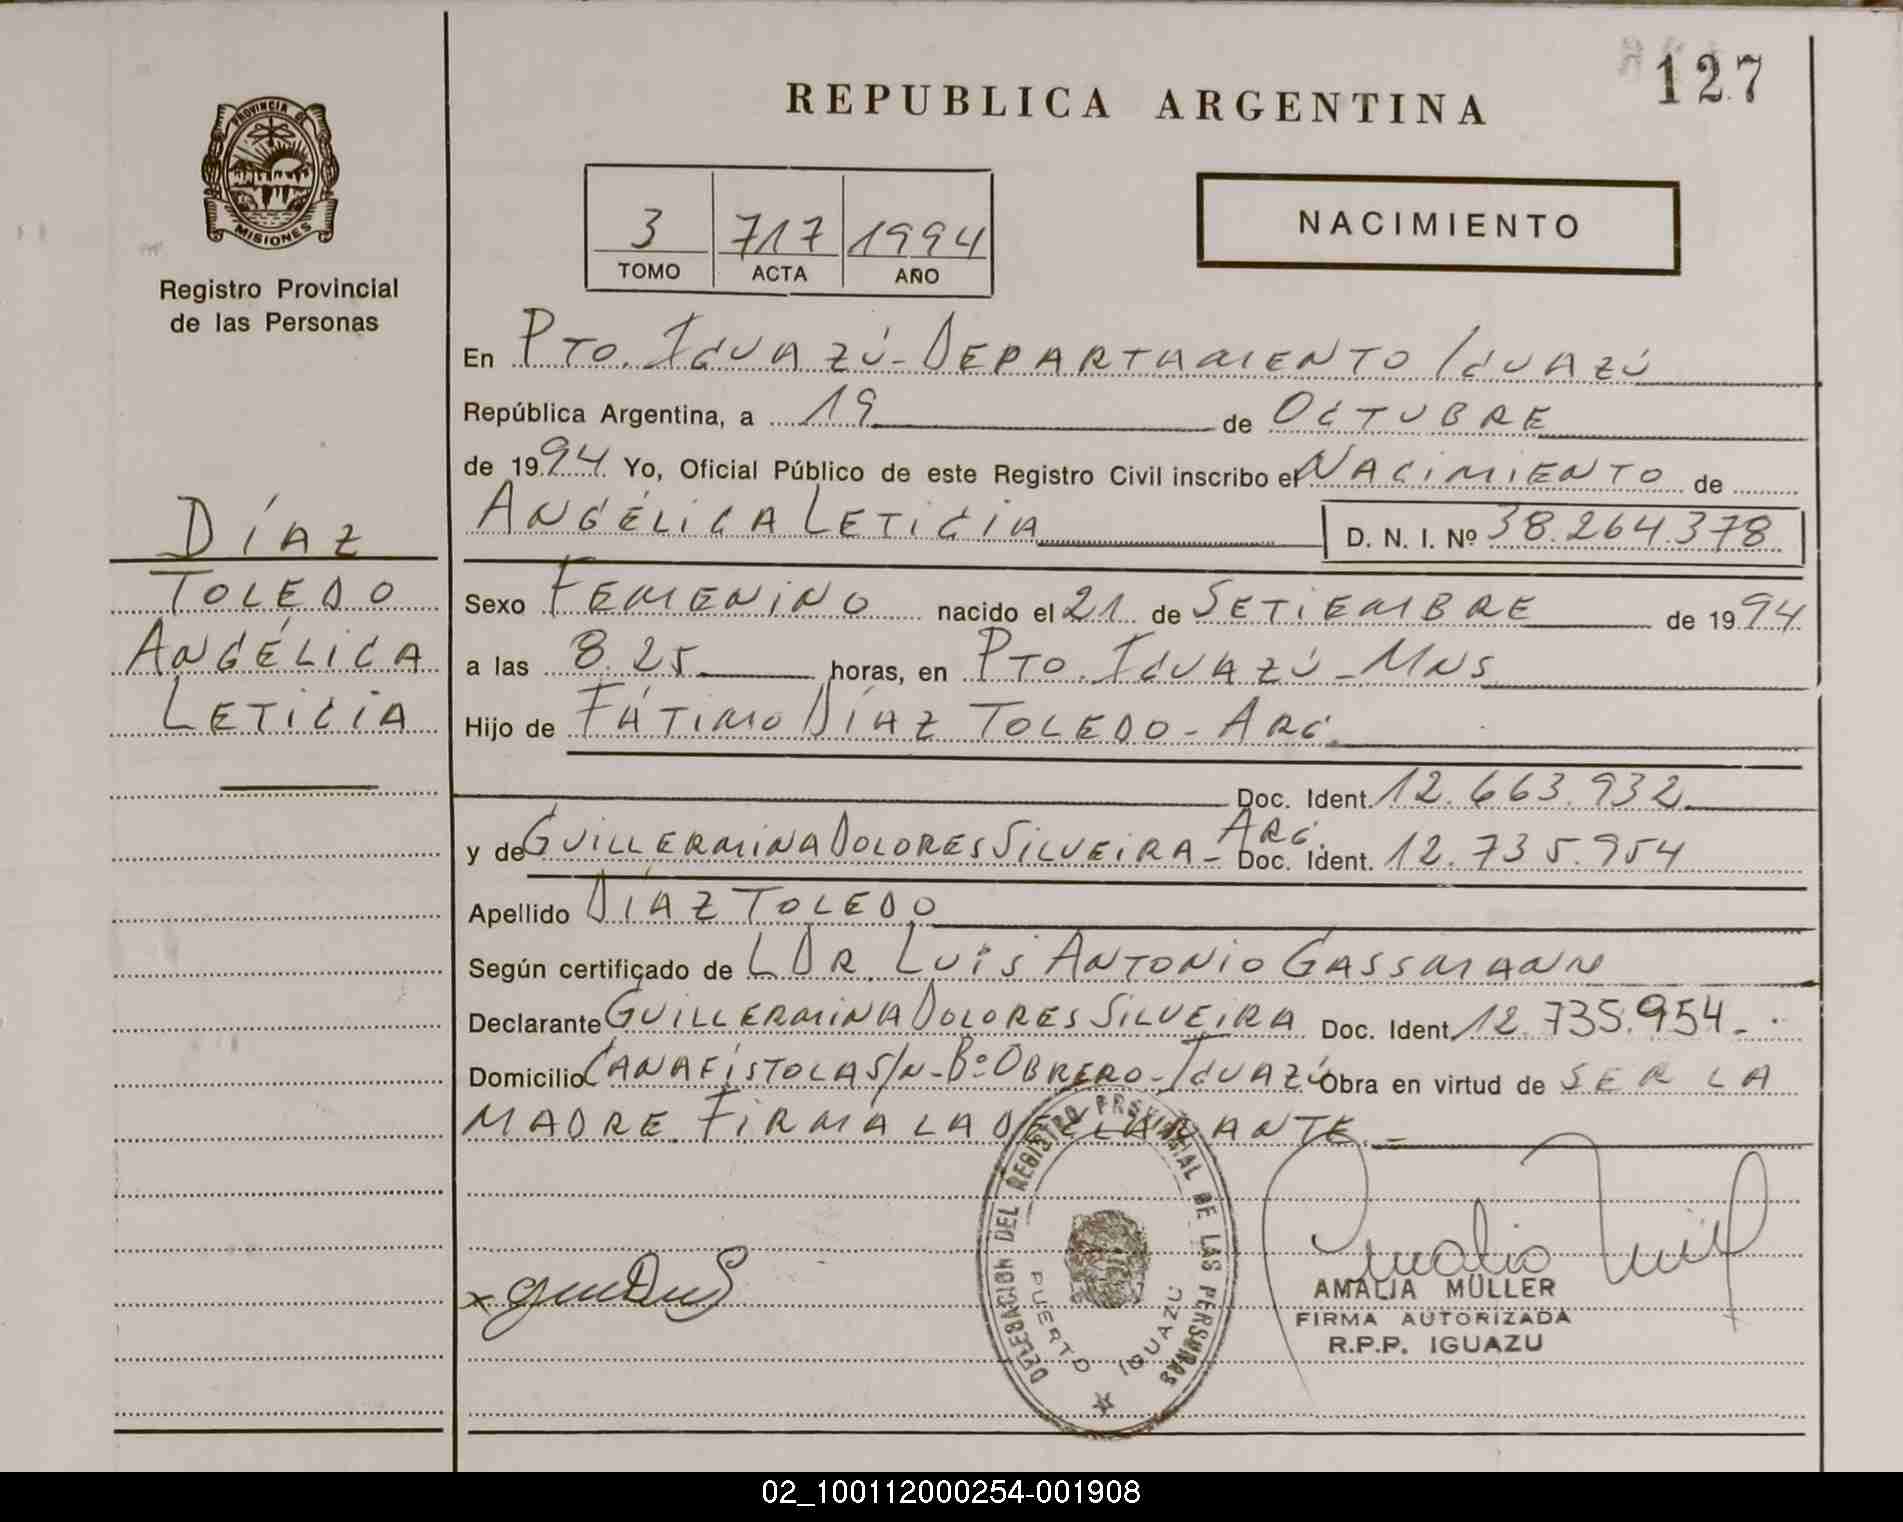 127
REPUBLICA ARGENTINA
PROVINCIA DE
MISIONES
Registro Provincial
de las Personas
3 717 1994
TOMO ACTA AÑO
NACIMIENTO
En PTO. IGUAZÚ - DEPARTAMENTO IGUAZÚ
República Argentina, a 19 de OCTUBRE
de 1994 Yo, Oficial Público de este Registro Civil inscribo el NACIMIENTO de
ANGÉLICA LETICIA D. N. I. Nº 38.264.378
DÍAZ
TOLEDO
ANGÉLICA
LETICIA
Sexo FEMENINO nacido el 21 de SETIEMBRE de 1994
a las 8.25 horas, en PTO. IGUAZÚ - MNS
Hijo de FÁTIMO DÍAZ TOLEDO - ARG.
Doc. Ident. 12.663.932
y de GUILLERMINA DOLORES SILVEIRA - ARG. Doc. Ident. 12.735.954
Apellido DÍAZ TOLEDO
Según certificado de L DR. LUIS ANTONIO GASSMANN
Declarante GUILLERMINA DOLORES SILVEIRA Doc. Ident. 12.735.954.-
Domicilio CANAFÍSTOLA S/N - Bº OBRERO - IGUAZÚ Obra en virtud de SER LA
MADRE. FIRMA LA DECLARANTE. -
DELEGACION DEL REGISTRO PROVINCIAL DE LAS PERSONAS
PUERTO IGUAZU
AMALIA MÜLLER
FIRMA AUTORIZADA
R.P.P. IGUAZU
02_100112000254-001908